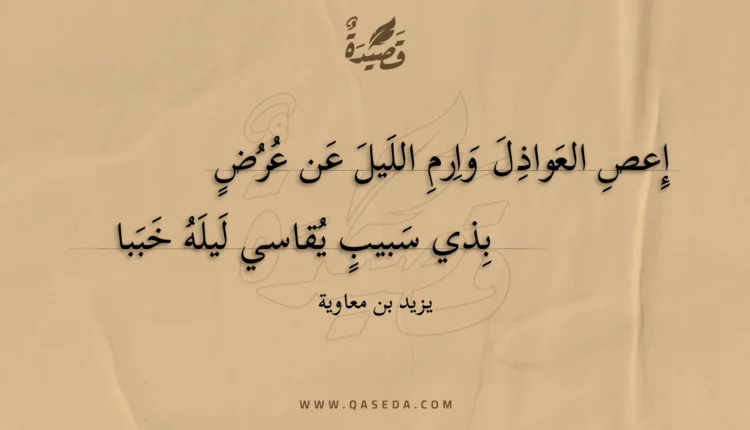 قَصِيْدَةٌ
إِعصِ العَواذِلَ وَاِرمِ اللَيلَ عَن عُرُضٍ
بِذي سَبيبٍ يُقاسي لَيلَهُ خَبَبا
يزيد بن معاوية
WWW.QASEDA.COM